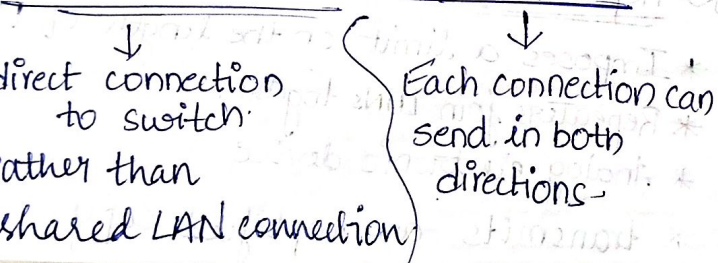 direct connection
to switch.
rather than
shared LAN connection
Each connection can
send in both
directions